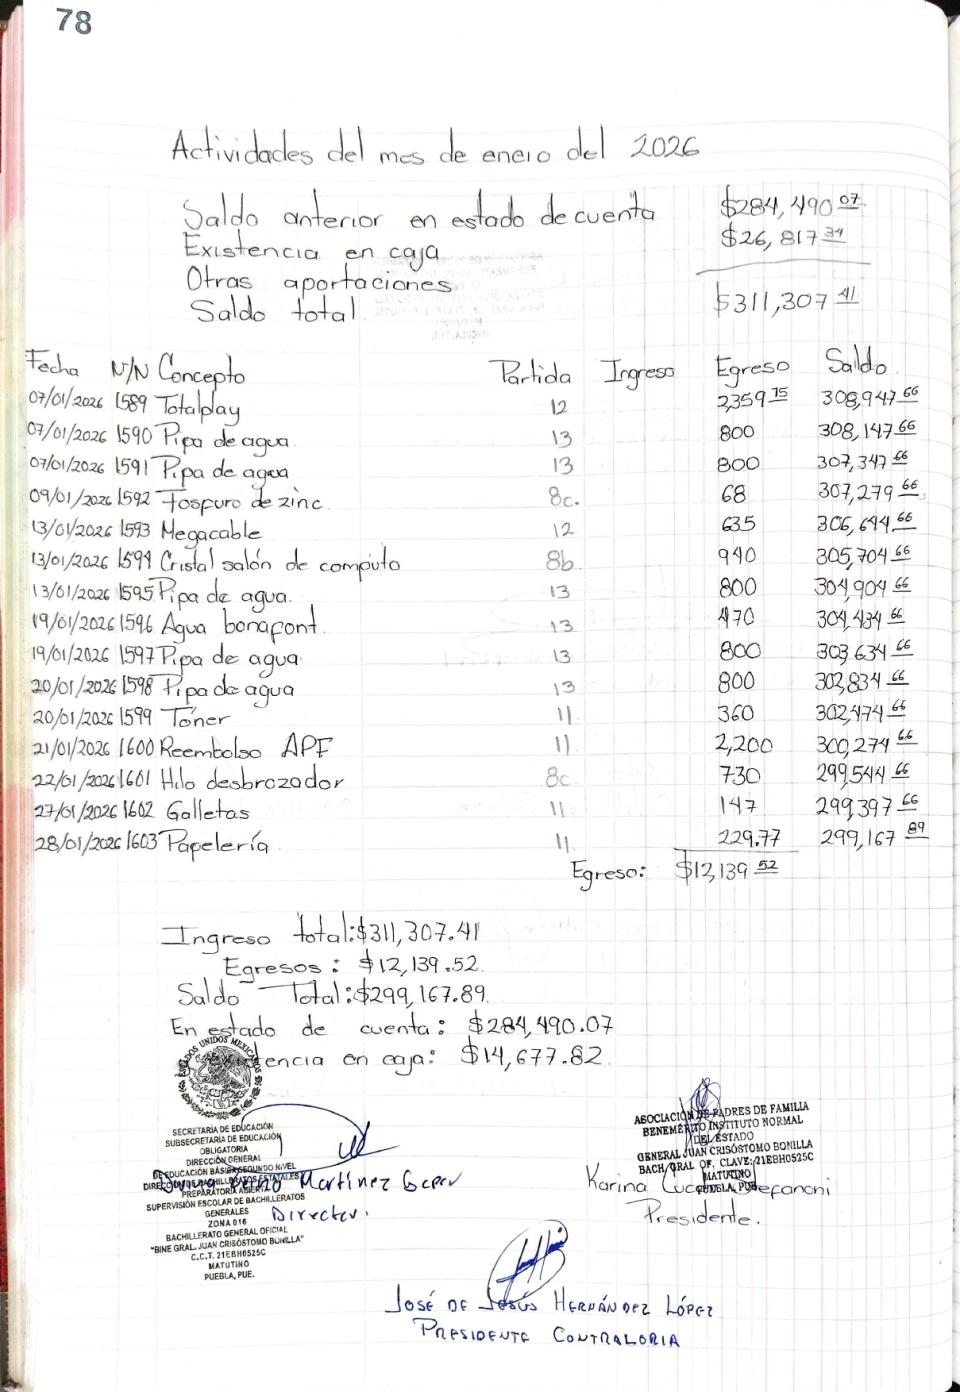 78
Actividades del mes de enero del 2026
Saldo anterior en estado de cuenta $284,490.07
Existencia en caja $26,817.34
Otras aportaciones
Saldo total $311,307.41
Fecha N/N Concepto Partida Ingreso Egreso Saldo
07/01/2026 1589 Totalplay 12 2,359.75 308,947.66
07/01/2026 1590 Pipa de agua 13 800 308,147.66
07/01/2026 1591 Pipa de agua 13 800 307,347.66
09/01/2026 1592 Fosfuro de zinc 8c. 68 307,279.66
13/01/2026 1593 Megacable 12 635 306,644.66
13/01/2026 1594 Cristal salón de computo 8b. 940 305,704.66
13/01/2026 1595 Pipa de agua. 13 800 304,904.66
19/01/2026 1596 Agua bonafont. 13 470 304,434.66
19/01/2026 1597 Pipa de agua 13 800 303,634.66
20/01/2026 1598 Pipa de agua 13 800 302,834.66
20/01/2026 1599 Tóner 11 360 302,474.66
21/01/2026 1600 Reembolso APF 11 2,200 300,274.66
22/01/2026 1601 Hilo desbrozador 8c 730 299,544.66
27/01/2026 1602 Galletas 11 147 299,397.66
28/01/2026 1603 Papelería 11 229.77 299,167.89
Egreso: $12,139.52
Ingreso total:$311,307.41
Egresos: $12,139.52
Saldo Total:$299,167.89
En estado de cuenta: $284,490.07
tencia en caja: $14,677.82
ESTADOS UNIDOS MEXICANOS
SECRETARÍA DE EDUCACIÓN
SUBSECRETARÍA DE EDUCACIÓN
OBLIGATORIA
DIRECCIÓN GENERAL
DE EDUCACIÓN BÁSICA SEGUNDO NIVEL
DIRECCIÓN DE BACHILLERATOS ESTATALES
PREPARATORIA ABIERTA
SUPERVISIÓN ESCOLAR DE BACHILLERATOS
GENERALES
ZONA 016
BACHILLERATO GENERAL OFICIAL
"BINE GRAL. JUAN CRISÓSTOMO BONILLA"
C.C.T. 21EBH0525C
MATUTINO
PUEBLA, PUE.
Martínez
Director.
ASOCIACIÓN DE PADRES DE FAMILIA
BENEMÉRITO INSTITUTO NORMAL
DEL ESTADO
GENERAL JUAN CRISÓSTOMO BONILLA
BACH. GRAL. OF. CLAVE: 21EBH0525C
MATUTINO
PUEBLA, PUE.
Karina
Presidente.
José de Jesús Hernández López
Presidente Contraloria